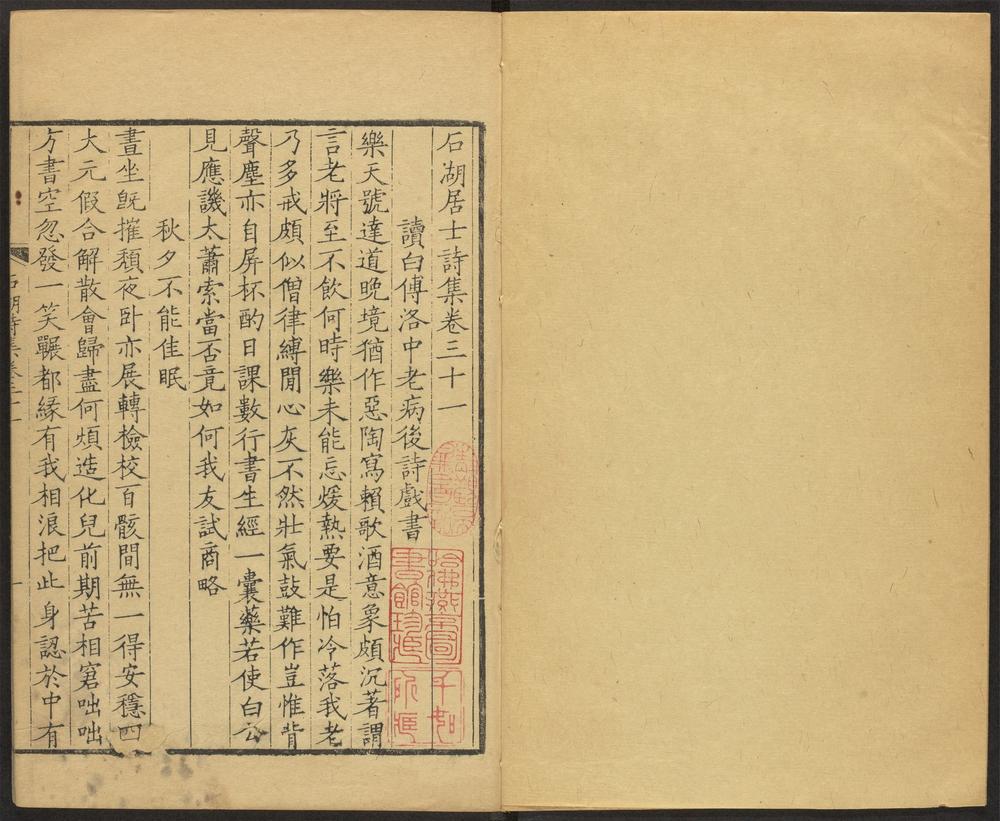 石湖居士詩集卷三十一
讀白傅洛中老病後詩戲書
樂天號達道晚境猶作惡陶寫賴歌酒意象頗沉著謂
言老將至不飲何時樂未能忘煖熱要是怕冷落我老
乃多戒頗似僧律縛閒心灰不然壯氣鼓難作豈惟背
聲塵亦自屏杯酌日課數行書生經一囊藥若使白公
見應譏太蕭索當否竟如何我友試商略
秋夕不能佳眠
晝坐旣摧頹夜卧亦展轉檢校百骸間無一得安穩四
大元假合解散會歸盡何煩造化兒前期苦相窘咄咄
方書空忽發一笑囅都緣有我相浪把此身認於中有
石湖詩集卷三十一
一
哈佛燕京圖
書館珍藏